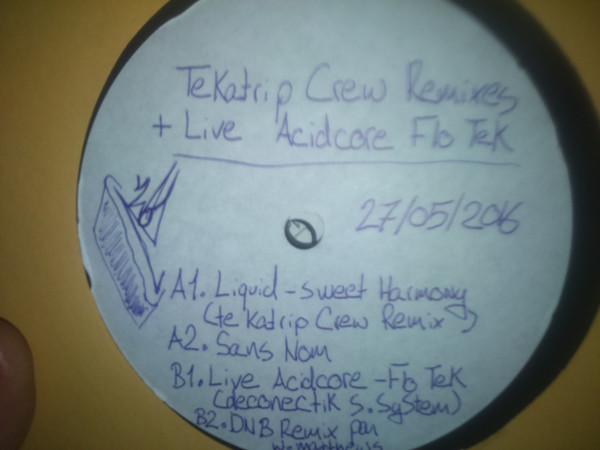 Tekatrip Crew Remixes
+ Live Acidcore Flo Tek
27/05/2016
A1. Liquid - Sweet Harmony
(tekatrip Crew Remix)
A2. Sans Nom
B1. Live Acidcore - Flo Tek
(deconectik S. System)
B2. DNB Remix par